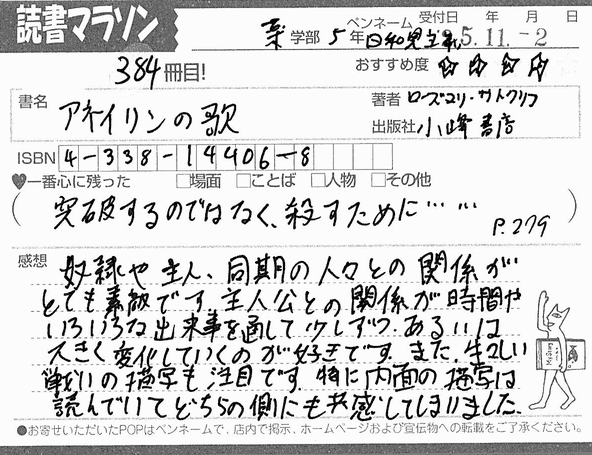 読書マラソン
薬学部 5年 ペンネーム 日和見主義 受付日 年 月 日
5.11.-2
384冊目! おすすめ度 ☆☆☆☆
書名 アネイリンの歌
著者 ローズマリ・サトクリフ
出版社 小峰書店
ISBN 4-338-14406-8
♥一番心に残った □場面 □ことば □人物 □その他
(突破するのではなく、殺すために…… P.279)
感想 奴隷や主人、同期の人々との関係が
とても素敵です。主人公との関係が時間や
いろいろな出来事を通して少しずつ、あるいは
大きく変化していくのが好きです。また、生々しい
戦いの描写も注目です。特に内面の描写は
読んでいてどちらの側にも共感してしまいました。
●お寄せいただいたPOPはペンネームで、店内で掲示、ホームページおよび宣伝物への転載をご了承ください。